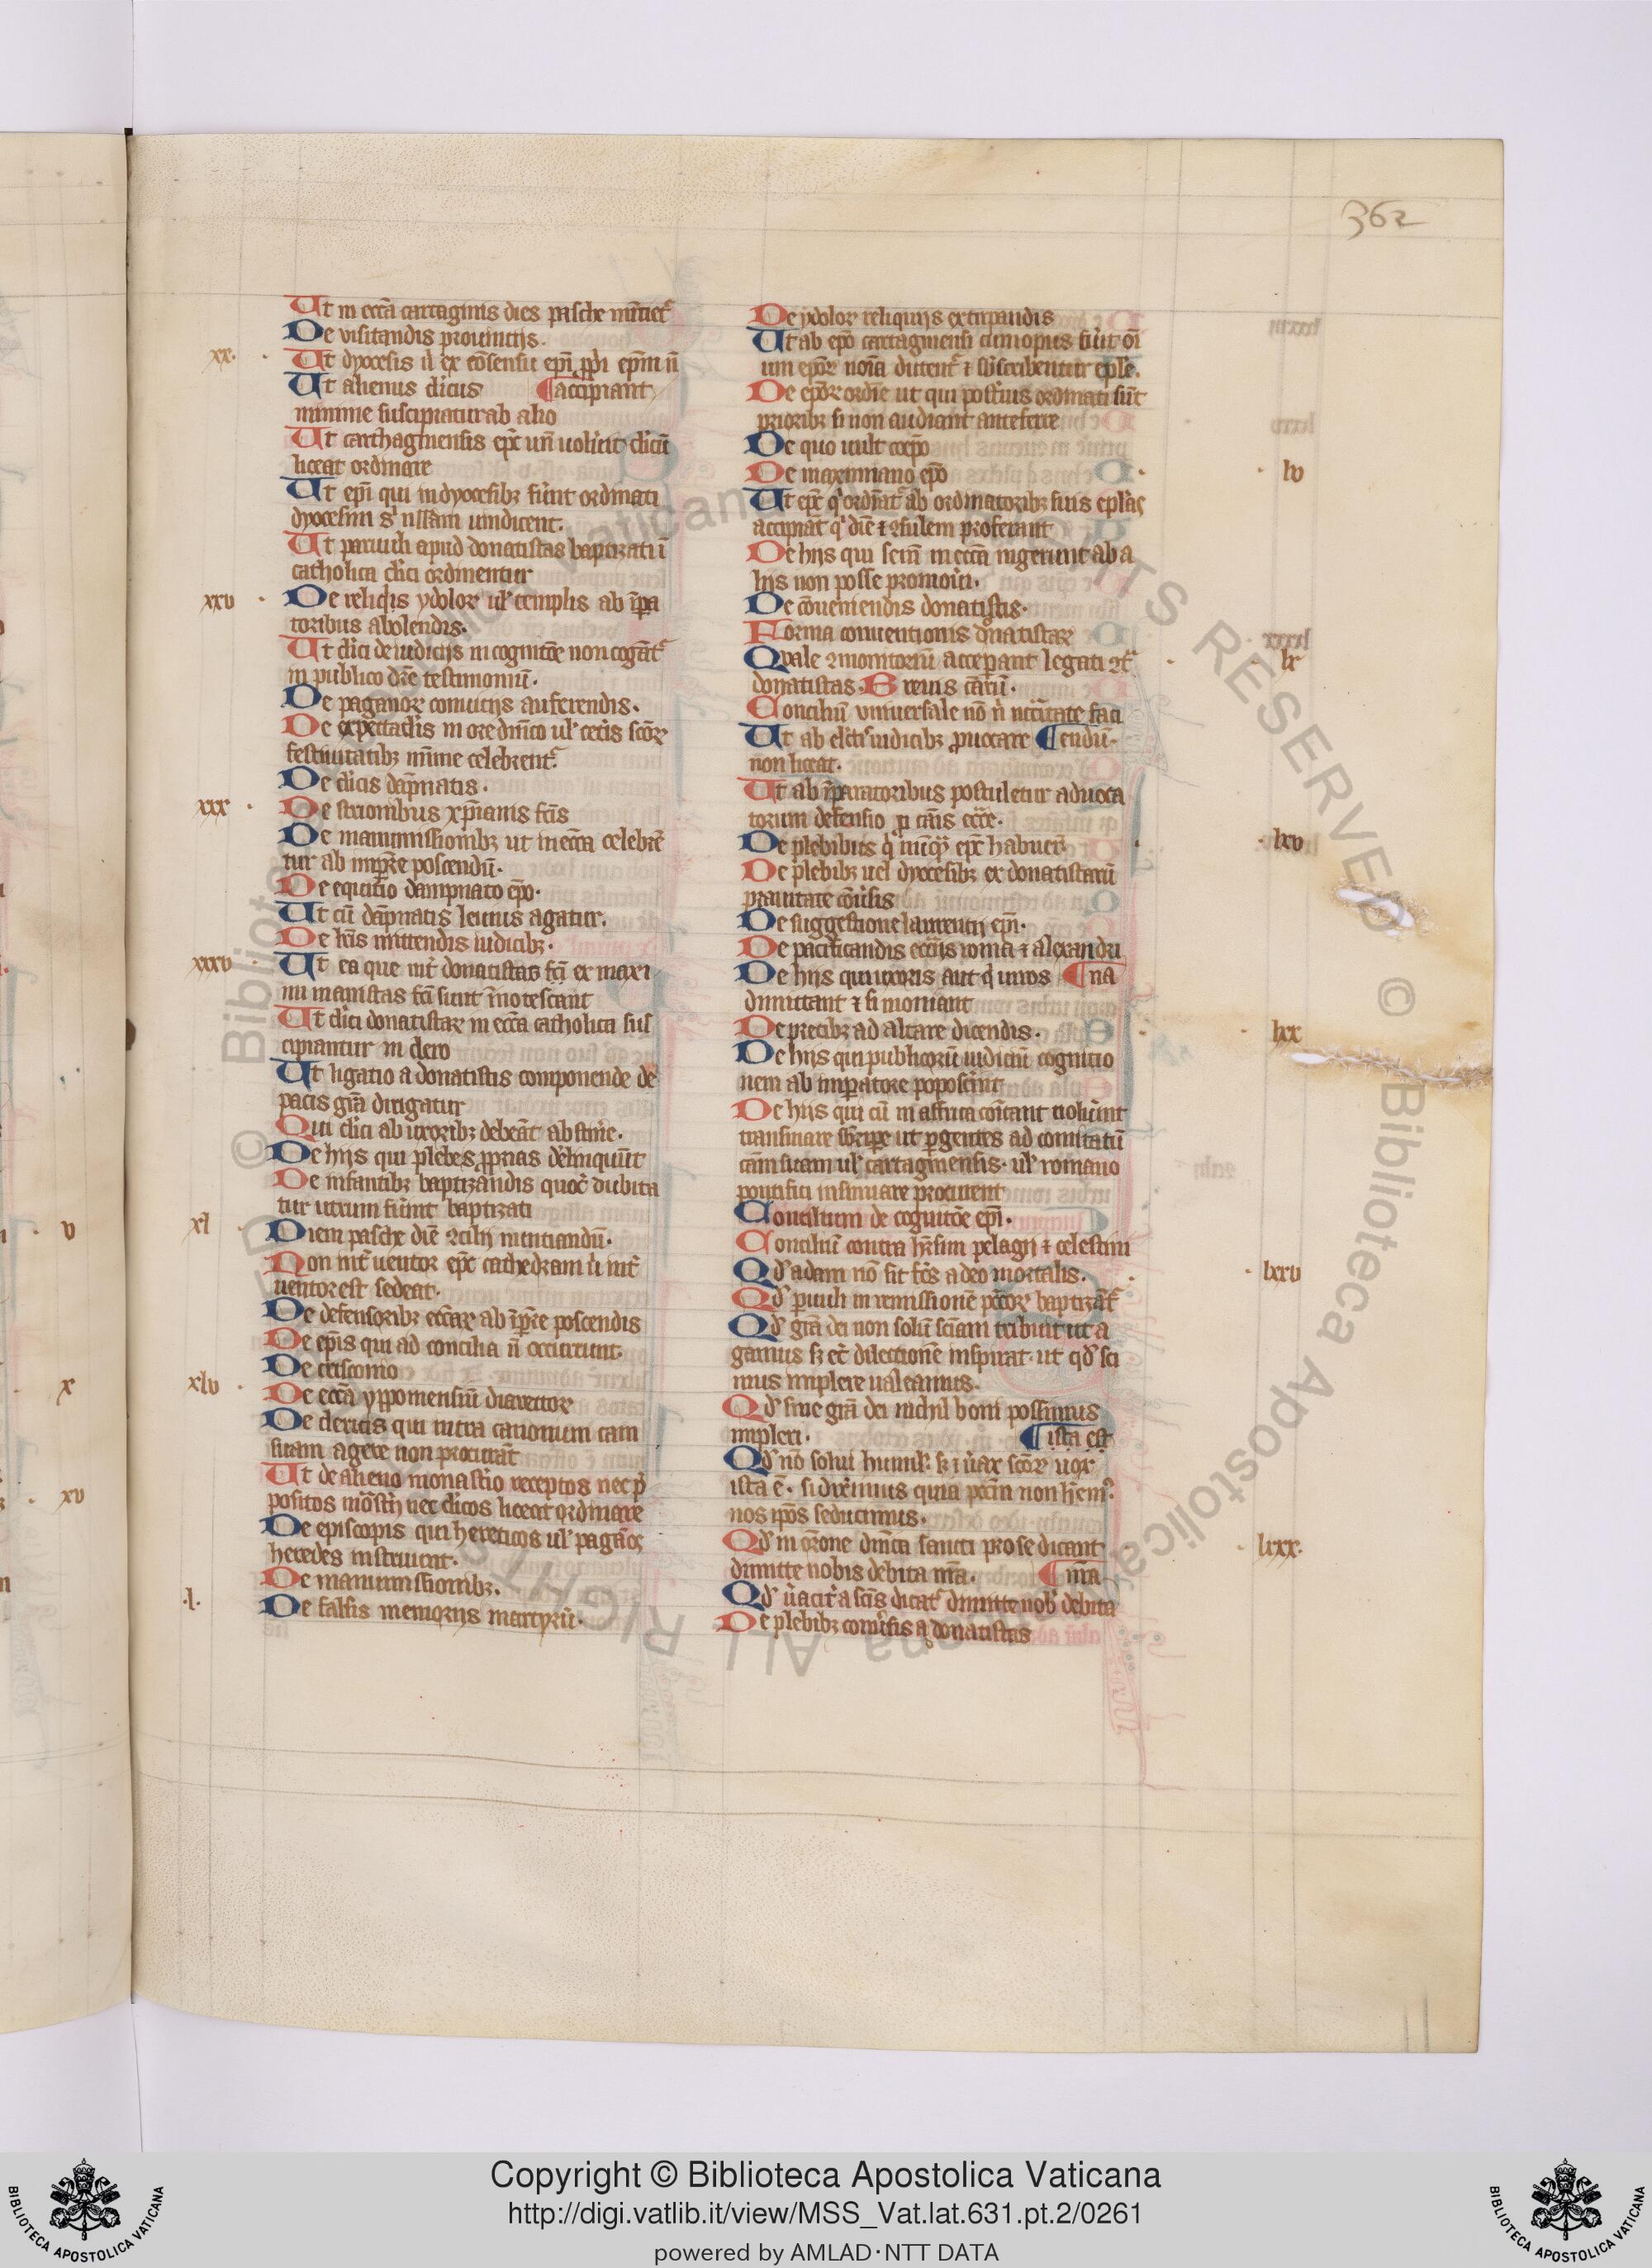 362
Ut in eccā cartaginis dies pasche nūtietᷣ
De visitandis prouincijs.
xx. Ut dyocesis ū ex cōsensu epī ꝓpī epm̄ n̄
Ut alienus clicus ¶accipiant
minime suscipiatur ab alio
Ut carthaginensis epc̄ un̄ uolūit clicū
liceat ordinare
Ut epī qui in dyocesibꝫ fūint ordinati
dyocesim s' nssām uindicent.
Ut paruuli apud donatistas baptizati ī
catholica clīci ordinentur
xxv De reliq̄is ydoloꝝ ul' templis ab īpa
toribus abolendis.
Ut clīci de iudicijs in cognitōe non cogātᷣ
in publico dr̄e testimoniū.
De paganoꝝ conuicijs auferendis.
De expectaclis in ore dnīco ul' cetis scōꝝ
festiuitatibꝫ mīme celebrentᷣ
De clicis dap̄natis.
xxx De stcionibus xp̄ianis fcīs
De manumissionibꝫ ut in eccā celebrē
tur ab impr̄e poscendū.
De equitio dampnato ep̄o.
Ut cū dap̄natis leuius agatur.
De hiis mittendis iudicibꝫ.
xxxv Ut ea que int' donatistas fcī ex maxi
mi manistas fcī sunt īnotescant
Ut clici donatistaꝝ in eccā catholica sus
cipiantur in clero
Ut ligatio a donatistis componende de
pacis grā dirigatur
Qui clici ab uxoribꝫ debeāt abstine.
De hijs qui plebes ꝓprias delinquūt
De infantibꝫ baptizandis quoc̄ dubita
tur utrum fūint baptizati
xl Diem pasche diē ꝯcilij nuntiandū.
Non int' uentoꝝ epc̄ cathedram ū int'
uentor est sedeat.
De defensoribꝫ eccāꝝ ab īpr̄e poscendis
De epīs qui ad concilia n̄ occurrunt.
De cresconio
xlv De eccā yppomensiū diarettoꝝ
De clericis qui intra canonum cam
suam agere non procurāt
Ut de alieno monastio receptos nec p̄
positos mōstīj nec clīcos liceat ordinare
De episcopis qui hereticos ul' paganos
heredes instruunt.
De manumissionibꝫ.
.l. De falsis memorijs martyrū.
De ydoloꝝ reliquijs extirpandis
Ut ab epō cartaginensi cū in opus fūit oī
um epōꝝ noīa dictentᷣ ⁊ subscribentur eplē.
De epōꝝ ordīe ut qui postius ordinati sūt
prioribꝫ si non audiant anteferre
De quo uult coepō
lv De maximiano epō
Ut epc̄ q' ordīatᷣ ab ordinatoribꝫ suis eplās
accipiāt q' diē ⁊ ꝯsulem proferant
De hijs qui sem̄ in eccā ingerunt ab a
lijs non posse promoūi.
De cōueniendis donatistis.
Forma conuentionis dnatistaꝝ
lx Quale ꝯmonitoriū acceperant legati ꝯtᷣ
donatistas. Breuis cārū.
Conciliū vniuersale nō ū nccītate faci
Ut ab electis iudicibꝫ ꝓuocare ¶endū.
non liceat.
Ut ab īperatoribus postuletur aduoca
torum defensio ꝓ cāis eccē.
lxv De plebibus q' nūqᷓ epc̄ habuer̄
De plebibꝫ uel dyocesibꝫ ex donatistarū
prauitate cōuisis
De suggestione laurentij epī.
De pacificandis ecciis roma ⁊ alexandri
De hijs qui uxoris aut q' uiros ¶na
dimittant ⁊ si moniant
lxx De precibꝫ ad altare dicendis.
De hijs qui publicoꝝ iudiciū cognitio
nem ab imp̄atore poposcint
De hijs qui cū in affrica cōicant uolūint
transmare subrepe ut ꝑgentes ad comitatū
cām suam ul' cartaginensis. ul' romano
pontifici insinuare procurent
Concilium de cognitōe epī.
Conciliū contra hr̄sim pelagij ⁊ celestini
lxxv Qd' adam nō sit fcōs a deo mortalis.
Qd' paruuli in remissionē pcc̄oꝝ baptizātᷣ
Qd' grā dei non solū sciam tribuit ut a
gamus sꝫ et̄ dilectionē inspirat. ut qd' sci
mus implere ualeamus.
Qd' sine grā dei nichil boni possumus
impleri. ¶ista est
Qd' nō solū humil'. sꝫ ⁊ uāx scōꝝ uox
ista ē. si dixīmus quia pccm̄ non hēm'.
nos ipōs seducimus.
lxxx. Qd' in orōne dnīca sancti pro se dicant
dimitte nobis debita nr̄a. ¶nr̄a
Qd' ūacit' a scīs dicatᷣ dimitte nob' debita
De plebibꝫ conūsis a donatistas
v
x
xv
© Biblioteca Apostolica Vaticana ALL RIGHTS RESERVED
Copyright © Biblioteca Apostolica Vaticana
http://digi.vatlib.it/view/MSS_Vat.lat.631.pt.2/0261
powered by AMLAD·NTT DATA
BIBLIOTECA APOSTOLICA VATICANA
BIBLIOTECA APOSTOLICA VATICANA